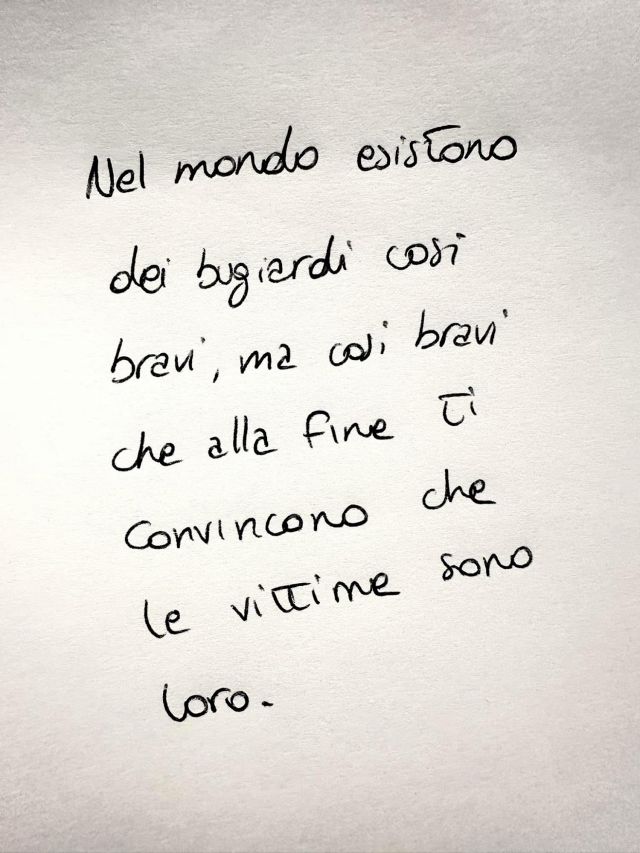 Nel mondo esistono
dei bugiardi così
bravi, ma così bravi
che alla fine ti
convincono che
le vittime sono
loro.